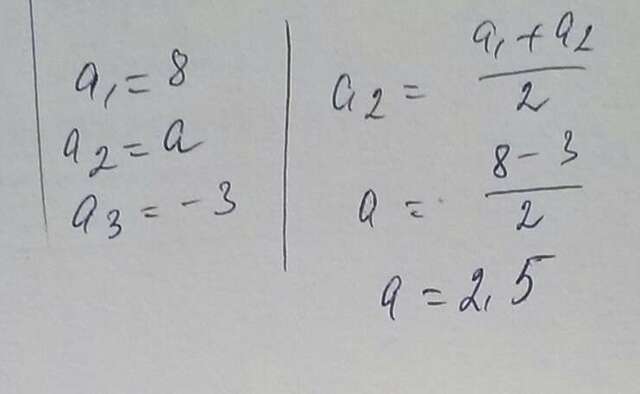 a₁ = 8
a₂ = a
a₃ = -3
a₂ = (a₁ + a₂)/2
a = (8 - 3)/2
a = 2,5